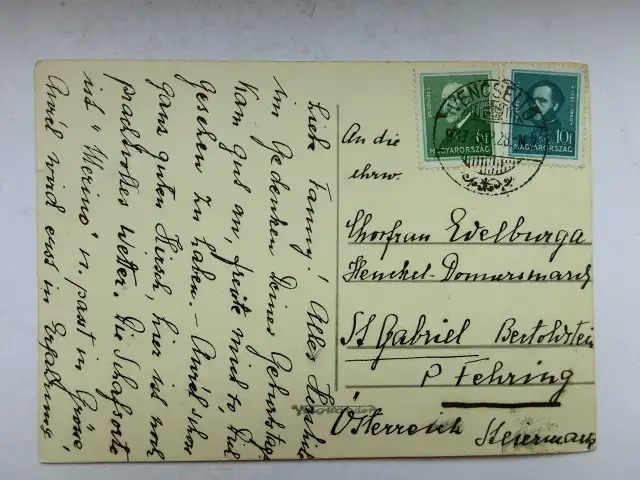 Liebe Fanny! Alles Herzliche
im Gedenken Deines Geburtstags
Kam gut an, freute mich so, Dich
gesehen zu haben. –
ganz guten Hirsch, hier ist noch
prachtvolles Wetter. Die Schafsorte
ist "Merino" u. passt in Grösse,
wird erst in Erfahrung
An die
ehrw.
Chorfrau Edelburga
Henckel-Donnersmarck
St Gabriel Bertoldstein
P Fehring
Österreich Steiermark
6f
MAGYARORSZÁG
10f
MAGYARORSZÁG
VENCSELLŐ